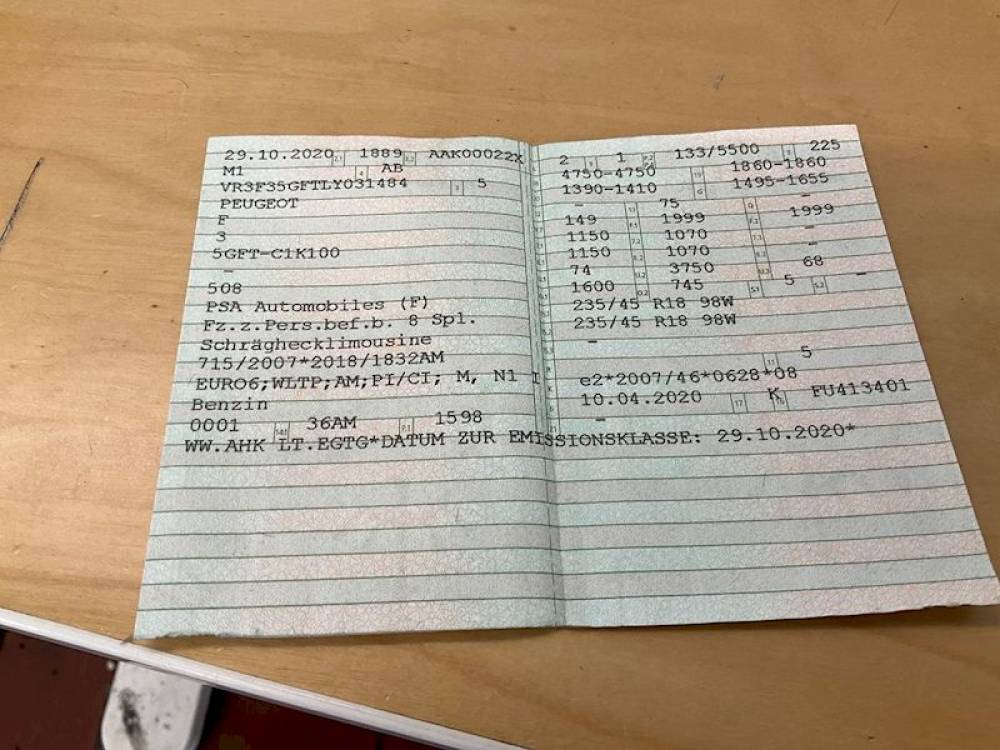 29.10.2020 2.1 1889 2.2 AAK00022X
M1 4 AB
VR3F35GFTLY031484 3 5
PEUGEOT
F
3
5GFT-C1K100
–
508
PSA Automobiles (F)
Fz.z.Pers.bef.b. 8 Spl.
Schräghecklimousine
715/2007*2018/1832AM
EURO6;WLTP;AM;PI/CI; M, N1 I
Benzin
0001 14.1 36AM P.1 1598
WW.AHK LT.EGTG*DATUM ZUR EMISSIONSKLASSE: 29.10.2020*
2 9 1 P.2 P.4 133/5500 T 225
4750-4750 18 1860-1860
1390-1410 G 1495-1655
– 13 75 Q –
149 F.1 1999 F.2 1999
1150 7.2 1070 7.3 –
1150 8.2 1070 8.3 –
74 U.2 3750 U.3 68
1600 O.2 745 S.1 5 S.2 –
235/45 R18 98W
235/45 R18 98W
–
11 5
e2*2007/46*0628*08
10.04.2020 17 K 16 FU413401
–